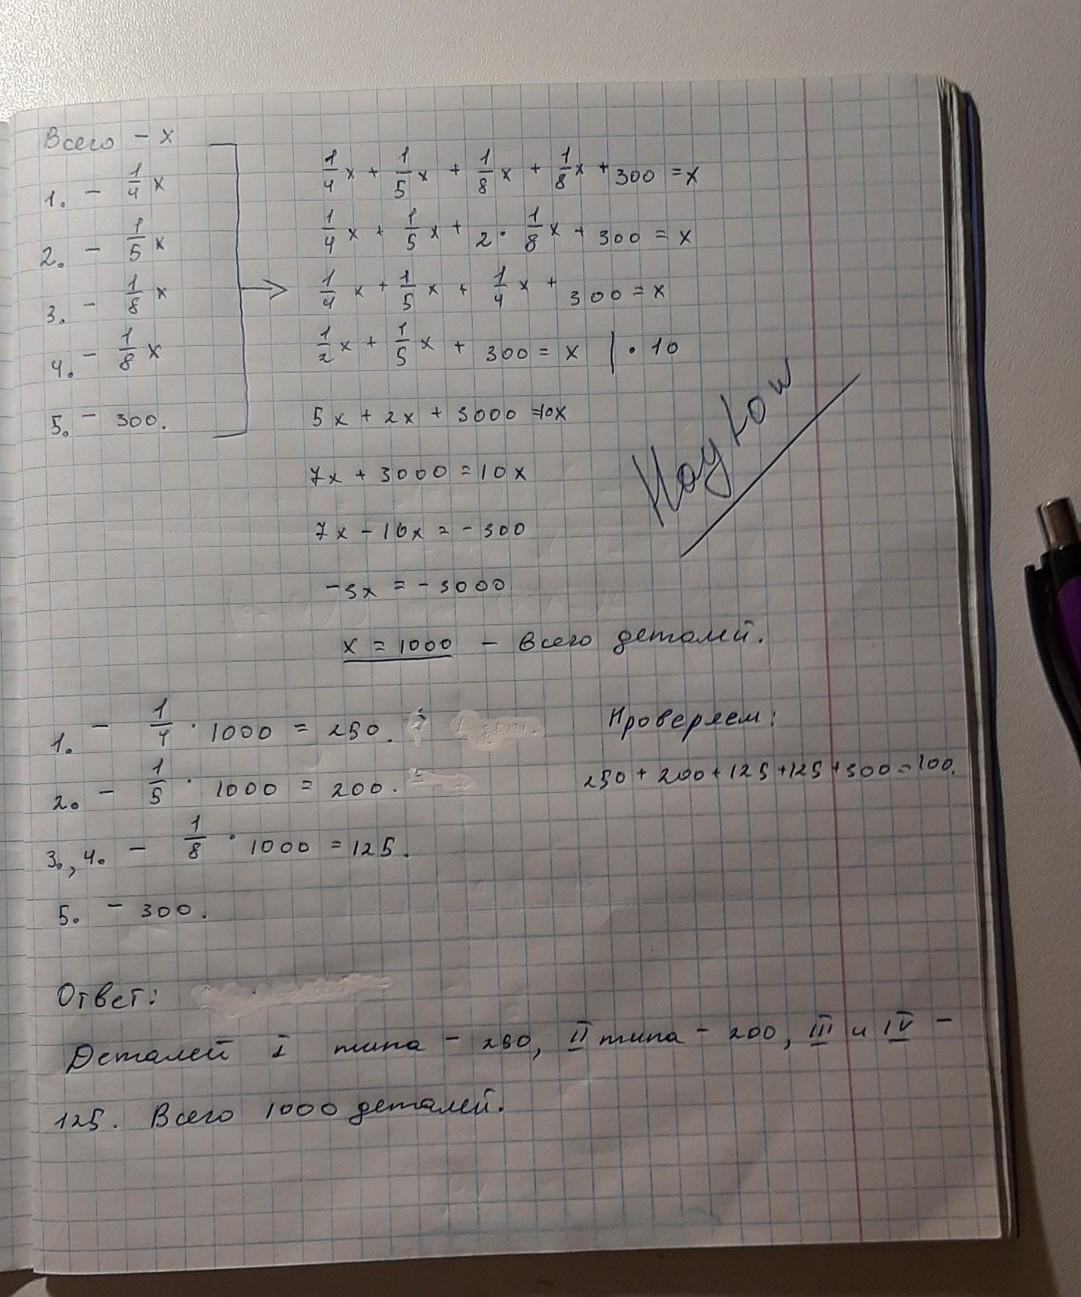 Всего - x
1. - 1/4 x
2. - 1/5 x
3. - 1/8 x
4. - 1/8 x
5. - 300.
1/4 x + 1/5 x + 1/8 x + 1/8 x + 300 = x
1/4 x + 1/5 x + 2 · 1/8 x + 300 = x
1/4 x + 1/5 x + 1/4 x + 300 = x
1/2 x + 1/5 x + 300 = x | · 10
5x + 2x + 3000 = 10x
7x + 3000 = 10x
7x - 10x = - 300
-3x = - 3000
x = 1000 - всего деталей.
1. - 1/4 · 1000 = 250.
2. - 1/5 · 1000 = 200.
3., 4. - 1/8 · 1000 = 125.
5. - 300.
Проверяем:
250 + 200 + 125 + 125 + 300 = 100.
Ответ:
Деталей I типа - 250, II типа - 200, III и IV -
125. Всего 1000 деталей.